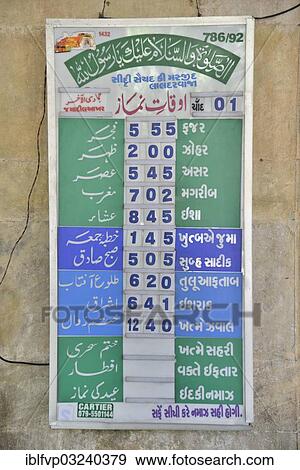 1432
786/92
الصلوٰۃ والسلام علیک یا رسول اللہ
સીદ્દી સૈયદ કી મસ્જિદ
લાલદરવાજા
જમાદીલઆખર
اوقات نماز
ચાંદ 01
فجر 5 55 ફજર
ظہر 2 00 ઝોહર
عصر 5 45 અસર
مغرب 7 02 મગરીબ
عشاء 8 45 ઈશા
خطبہ جمعہ 1 45 ખુત્બએ જુમા
صبح صادق 5 05 સુબ્હ સાદીક
طلوع آفتاب 6 20 તુલૂઆફતાબ
اشراق 6 41 ઈશરાક
12 40 ખત્મે ઝવાલ
ختم سحری ખત્મે સહરી
افطار વક્તે ઈફતાર
عید کی نماز ઈદકી નમાઝ
CARTIER
079-5501144
સફેં સીધી કરે નમાઝ સહી હોગી.
FOTOSEARCH
iblfvp03240379 www.fotosearch.com